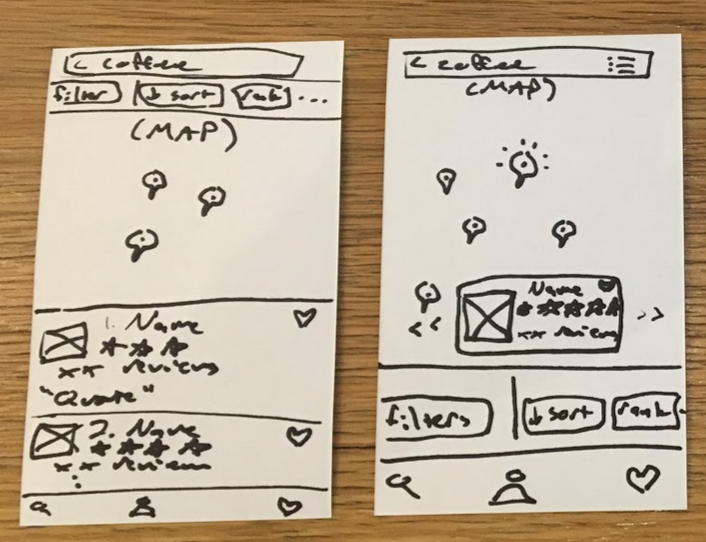 < coffee
filter ↓ sort rank ...
(MAP)
1. Name
xx reviews
"Quote"
2. Name
xx reviews
< coffee
(MAP)
Name
xx reviews
<< >>
filters ↓ sort rank